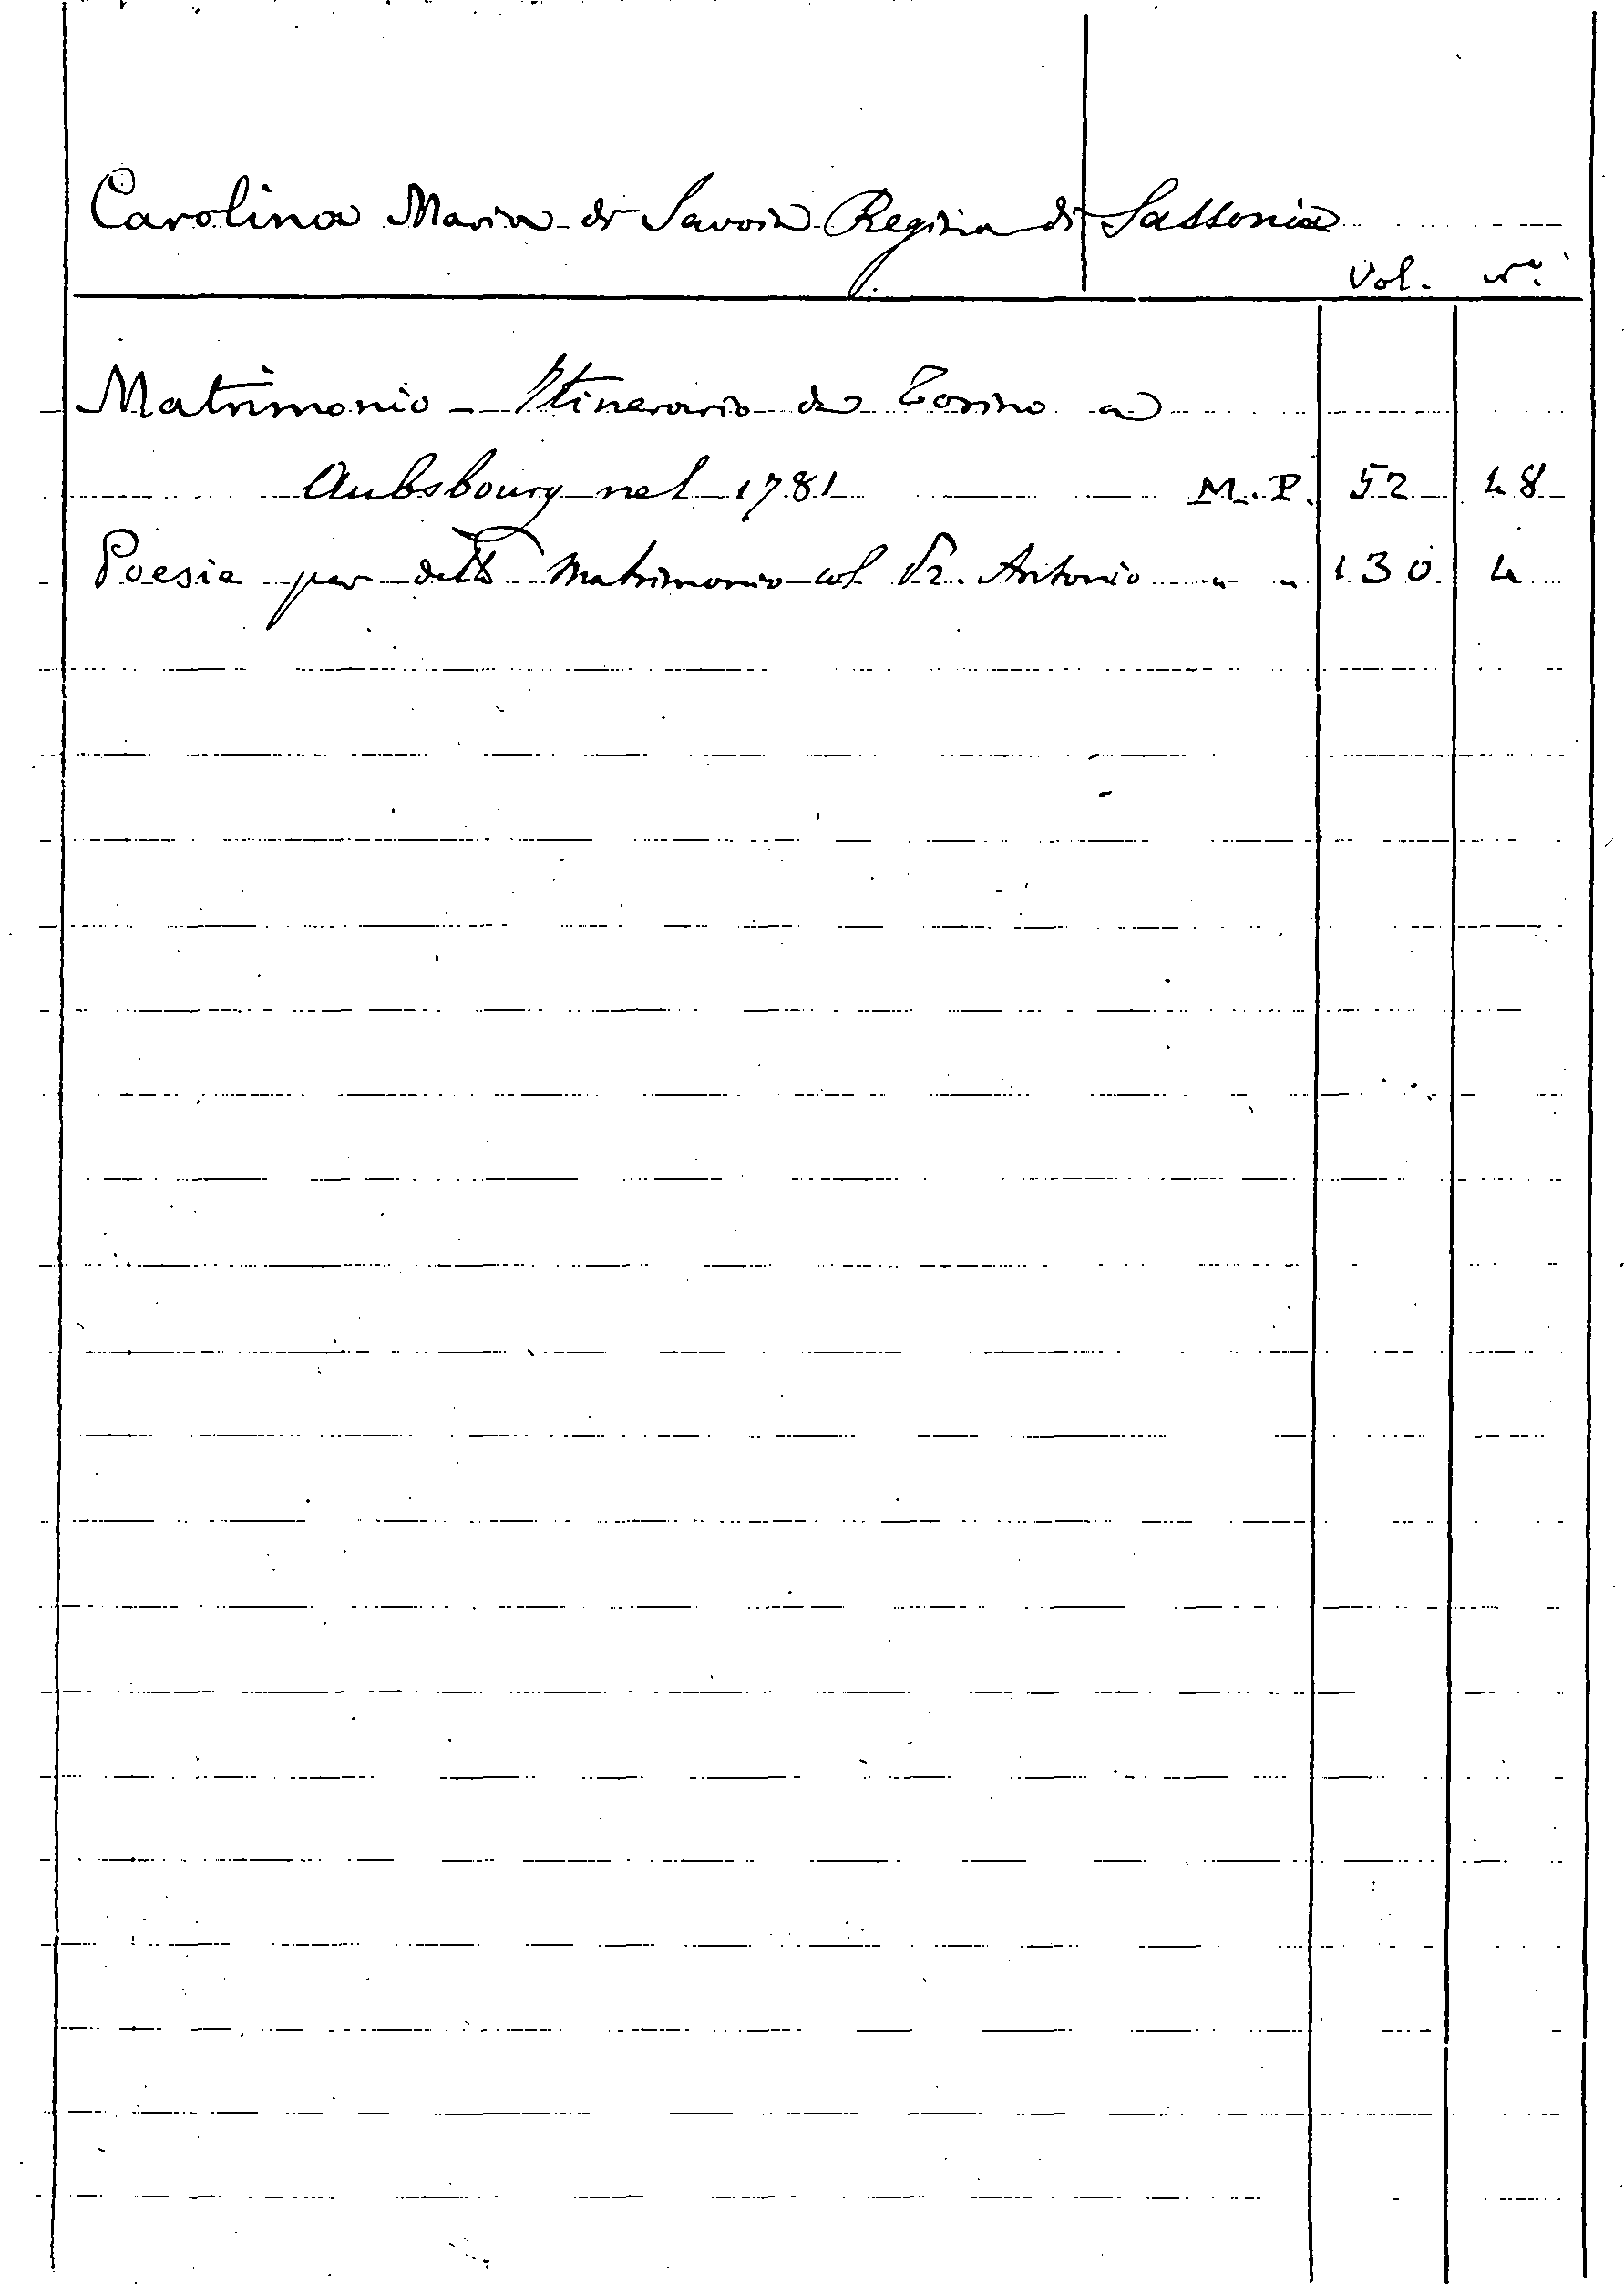 Carolina Maria di Savoia Regina di Sassonia
Vol. N.°
Matrimonio - Itinerario da Torino a
Aubsbourg nel 1781 M.P. 52 48
Poesie per detto Matrimonio col Pr. Antonio " " 130 4